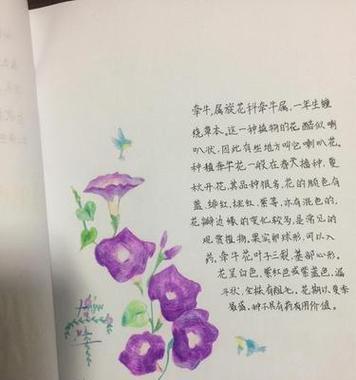 牵牛,属旋花科牵牛属,一年生缠
绕草本。这一种植物的花酷似喇
叭状,因此有些地方叫它喇叭花。
种植牵牛花一般在春天播种,夏
秋开花,其品种很多,花的颜色有
蓝、绯红、桃红、紫等,亦有混色的,
花瓣边缘的变化较多,是常见的
观赏植物。果实卵球形,可以入
药,牵牛花叶子三裂,基部心形。
花呈白色、紫红色或紫蓝色,漏
斗状,全株有粗毛。花期以夏季
最盛,种子具有药用价值。